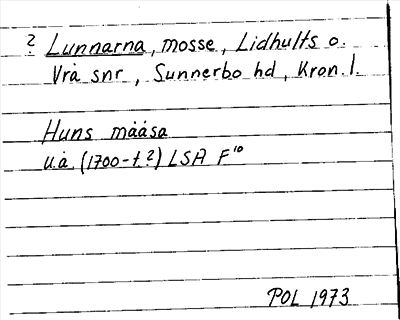 ? Lunnarna, mosse, Lidhults o.
Vrå snr, Sunnerbo hd, Kron. l.
Huns mååsa
u.å (1700-t.?) LSA F¹⁰
POL 1973